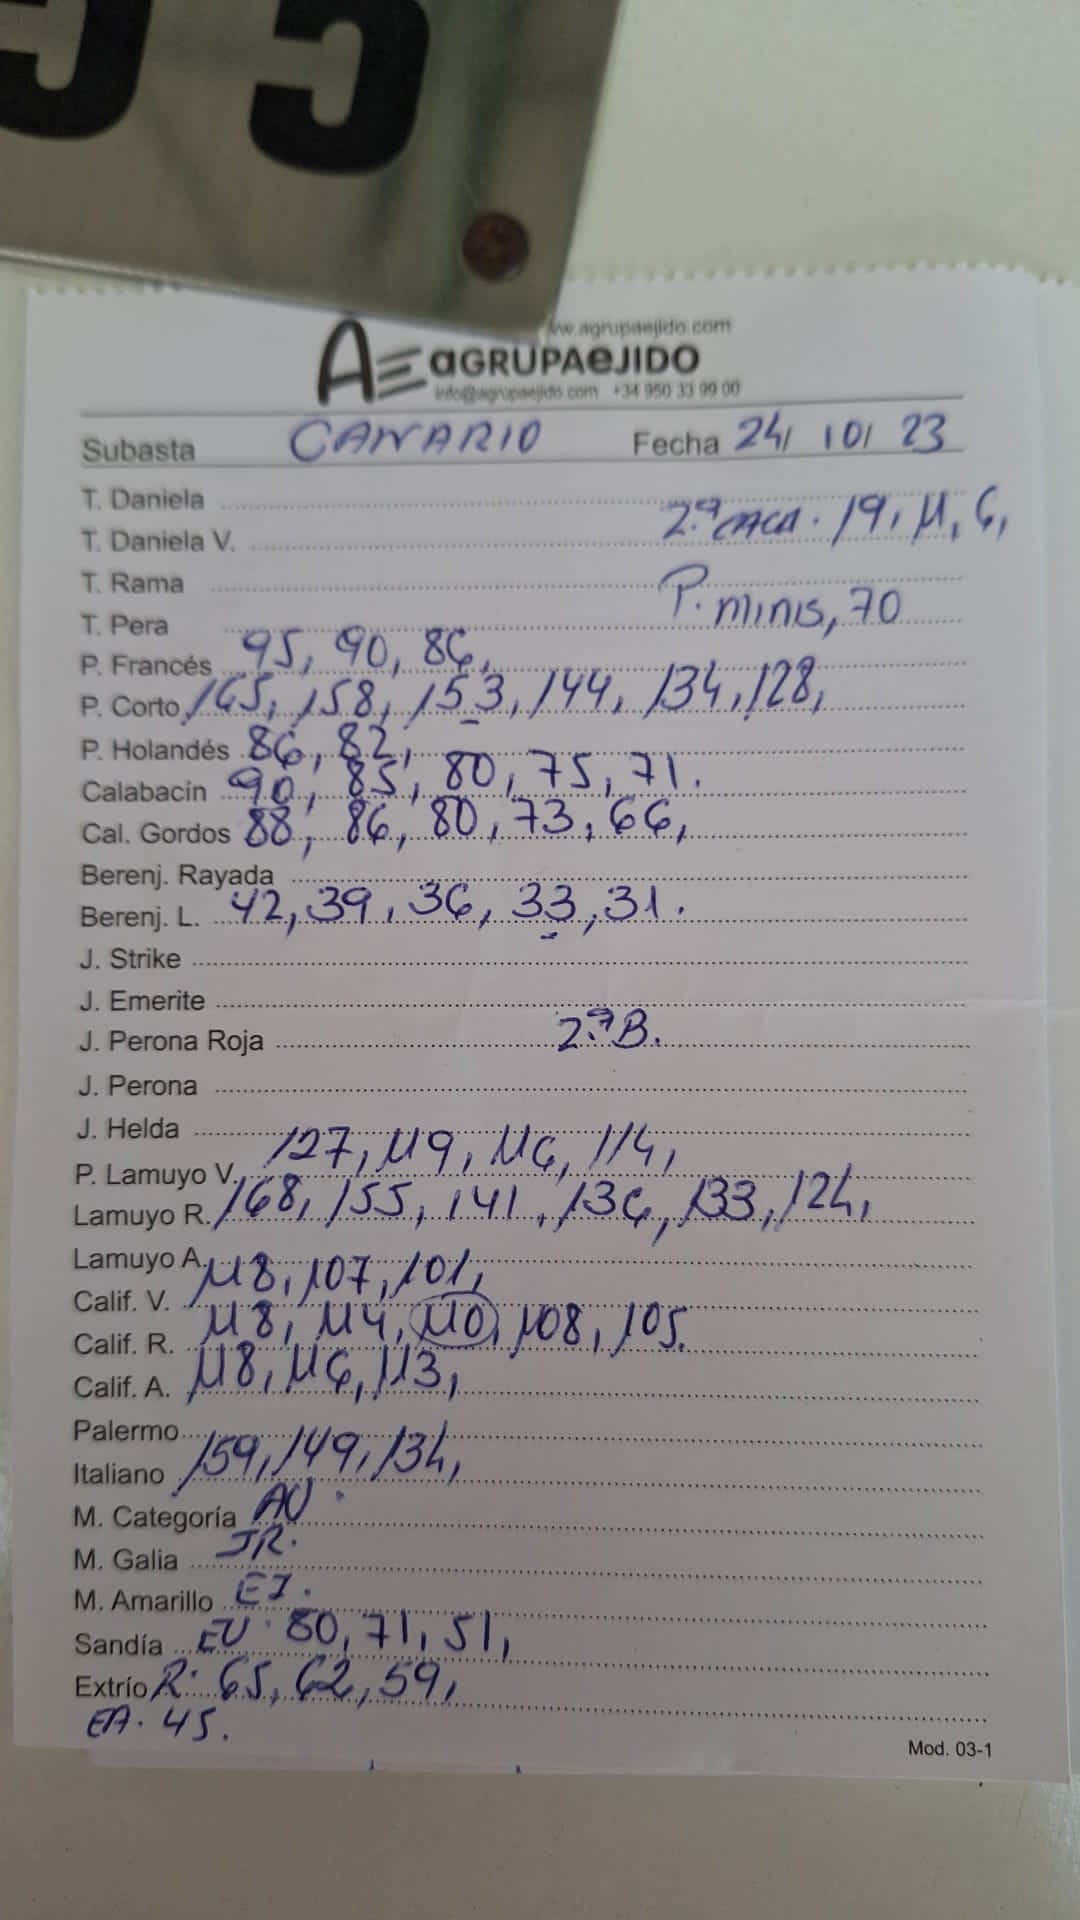 55
www.agrupaejido.com
AE aGRUPAeJIDO
info@agrupaejido.com +34 950 33 99 00
Subasta CANARIO Fecha 24/ 10/ 23
T. Daniela
T. Daniela V. 2.ª CACA. 19, 11, 6,
T. Rama
T. Pera P. minis, 70
P. Francés 95, 90, 86,
P. Corto 165, 158, 153, 144, 134, 128,
P. Holandés 86, 82,
Calabacín 90, 85, 80, 75, 71.
Cal. Gordos 88, 86, 80, 73, 66,
Berenj. Rayada
Berenj. L. 42, 39, 36, 33, 31.
J. Strike
J. Emerite
J. Perona Roja 2.ª B.
J. Perona
J. Helda
P. Lamuyo V. 127, 119, 116, 114,
Lamuyo R. 168, 155, 141, 136, 133, 124,
Lamuyo A.
Calif. V. 118, 107, 101,
Calif. R. 118, 114, 110, 108, 105.
Calif. A. 118, 116, 113,
Palermo
Italiano 159, 149, 134,
M. Categoría AU.
M. Galia JR.
M. Amarillo EJ.
Sandía EU. 80, 71, 51,
Extrío R. 65, 62, 59,
EA. 45.
Mod. 03-1